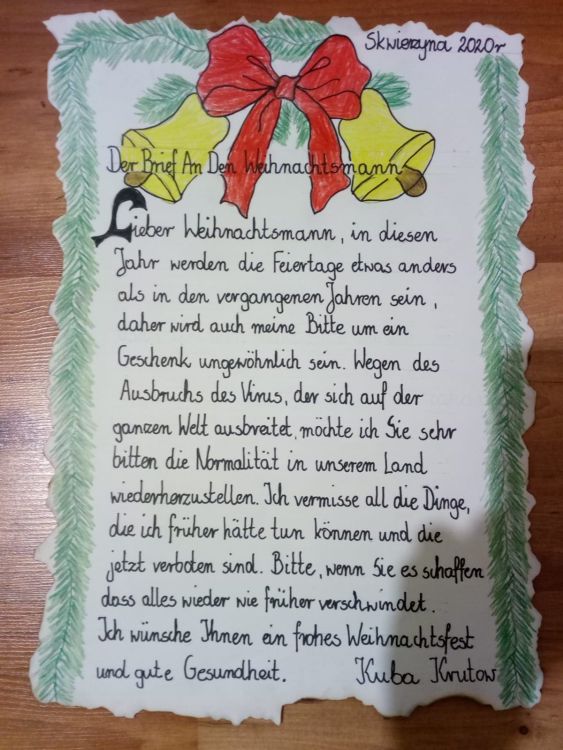 Skwierzyna 2020r
Der Brief An Den Weihnachtsmann
Lieber Weihnachtsmann, in diesen
Jahr werden die Feiertage etwas anders
als in den vergangenen Jahren sein,
daher wird auch meine Bitte um ein
Geschenk ungewöhnlich sein. Wegen des
Ausbruchs des Virus, der sich auf der
ganzen Welt ausbreitet, möchte ich Sie sehr
bitten die Normalität in unserem Land
wiederherzustellen. Ich vermisse all die Dinge,
die ich früher hätte tun können und die
jetzt verboten sind. Bitte, wenn Sie es schaffen
dass alles wieder wie früher verschwindet.
Ich wünsche Ihnen ein frohes Weihnachtsfest
und gute Gesundheit. Kuba Krutow